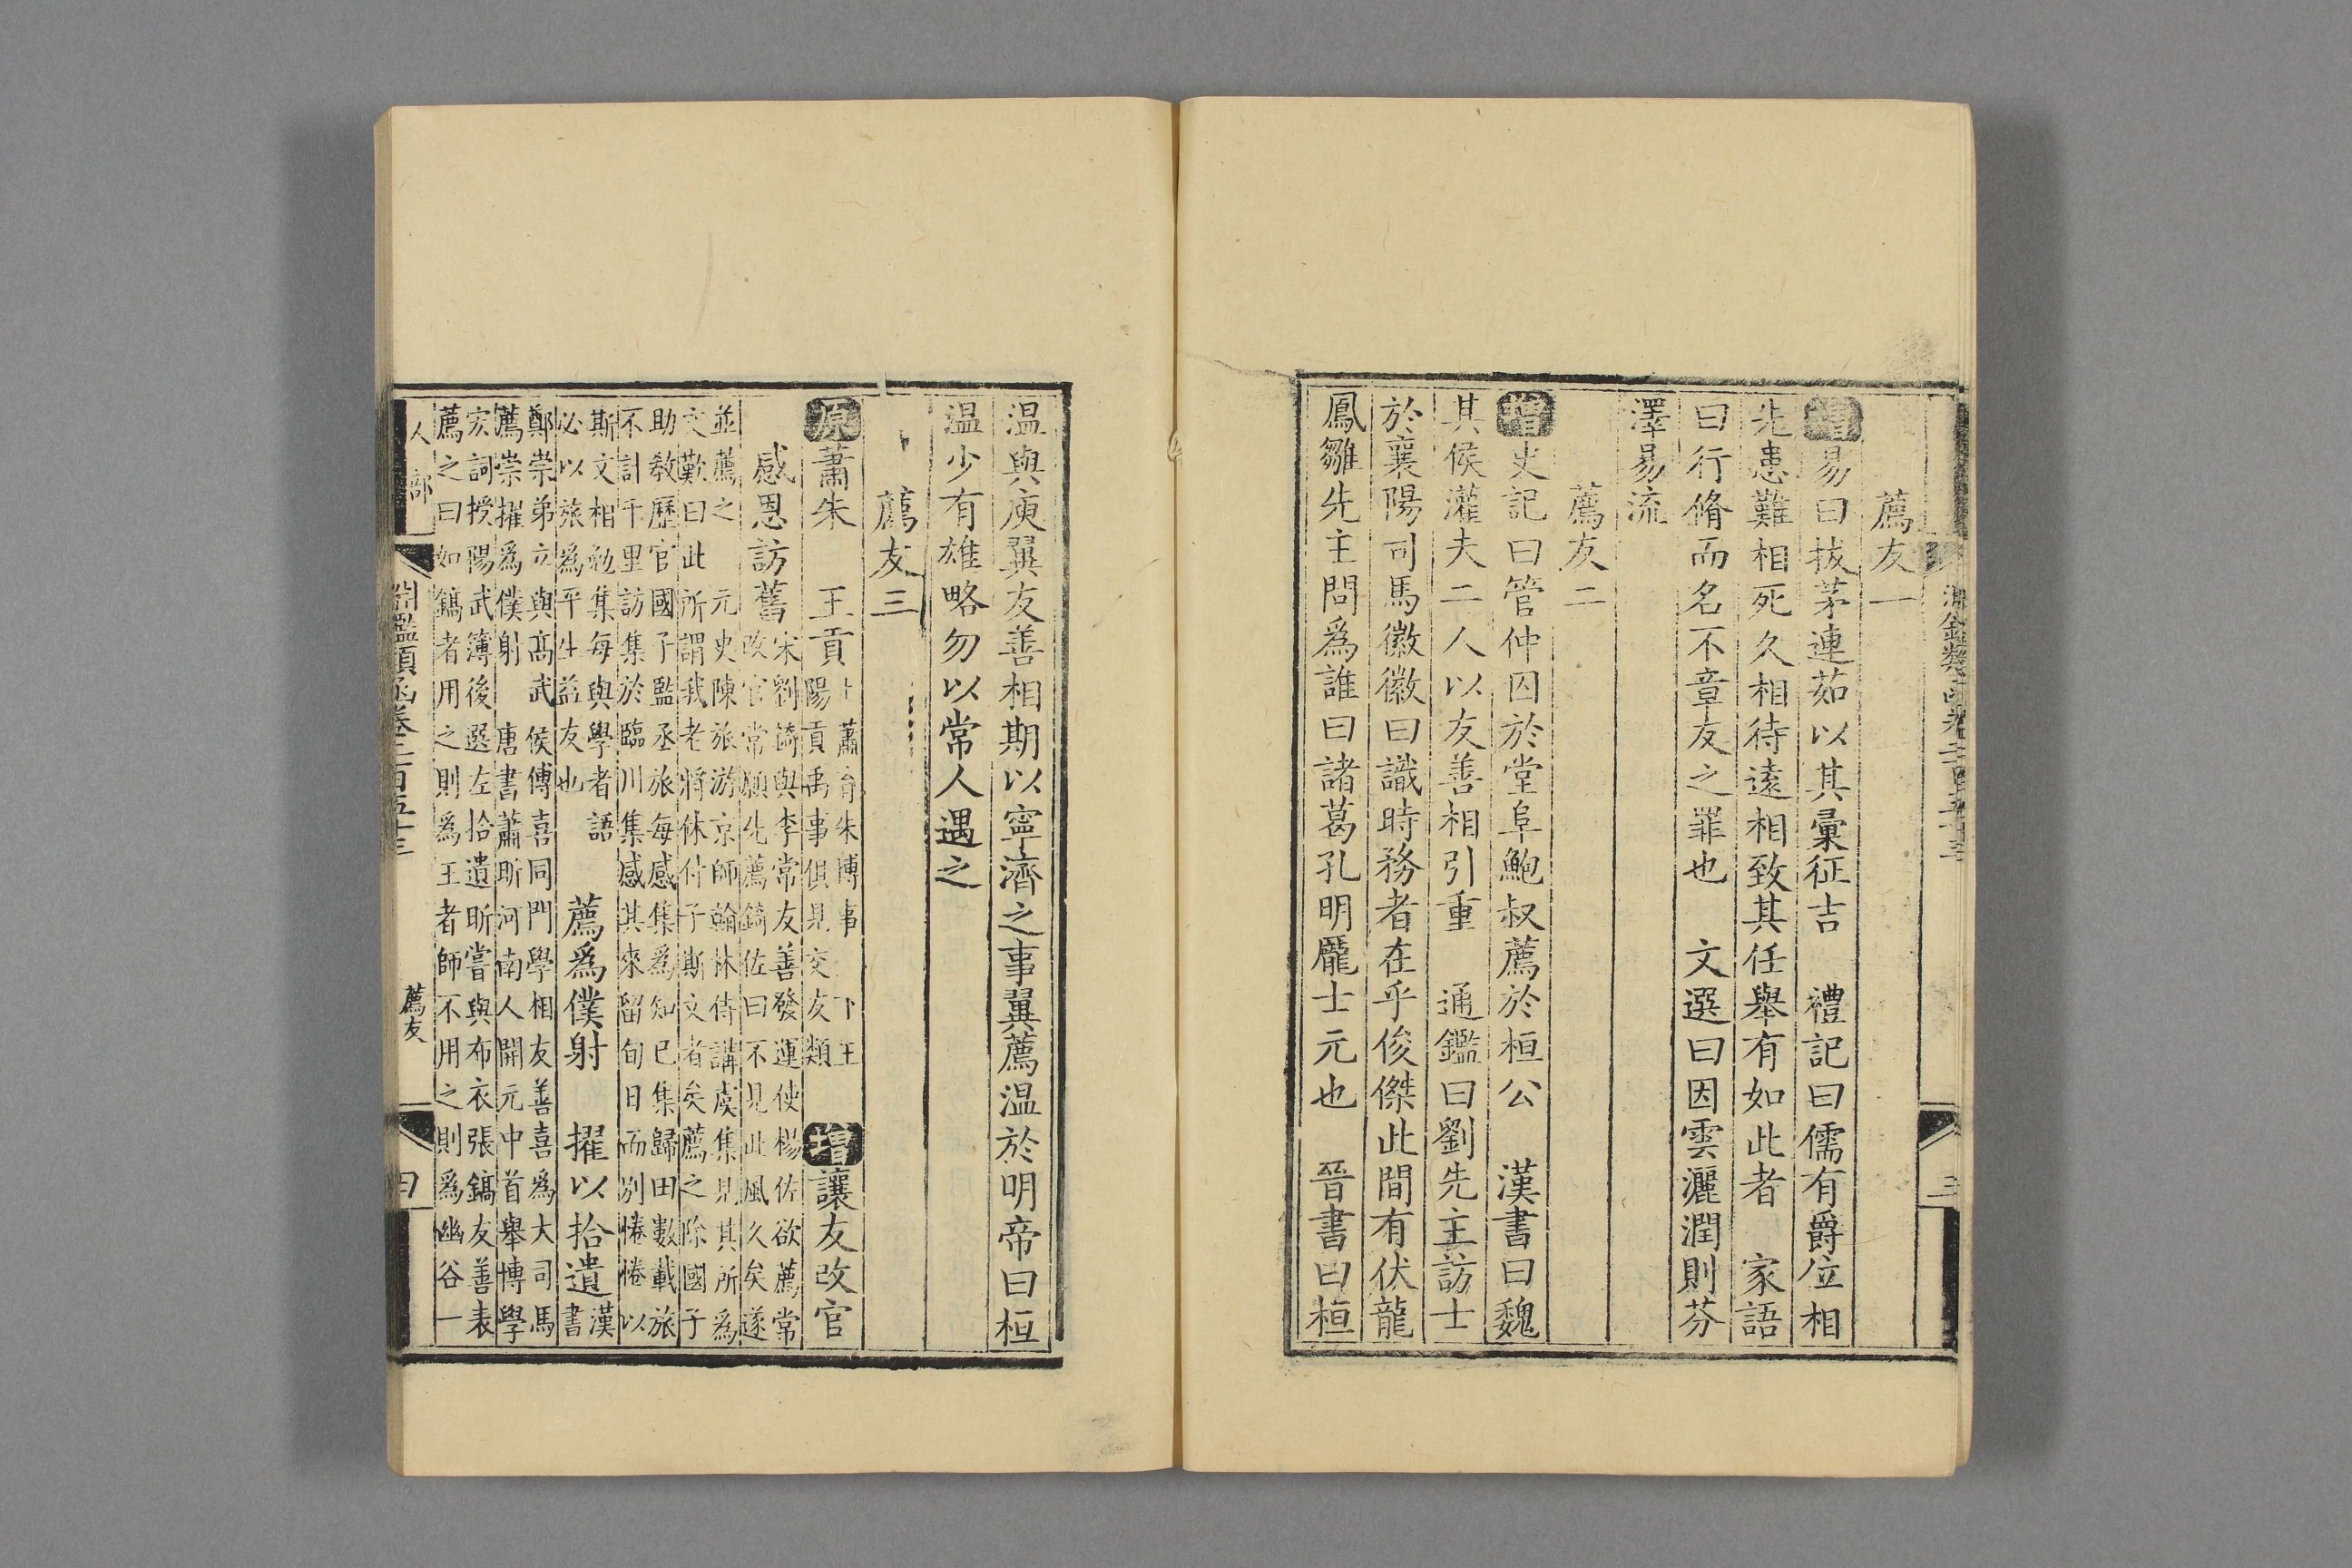 淵鑑類函卷二百五十三
三
薦友一
增易曰拔茅連茹以其彙征吉　禮記曰儒有爵位相
先患難相死久相待遠相致其任舉有如此者　家語
曰行脩而名不章友之罪也　文選曰因雲灑潤則芬
澤易流
薦友二
增史記曰管仲囚於堂阜鮑叔薦於桓公　漢書曰魏
其侯灌夫二人以友善相引重　通鑑曰劉先主訪士
於襄陽司馬徽徽曰識時務者在乎俊傑此間有伏龍
鳳雛先主問爲誰曰諸葛孔明龐士元也　晉書曰桓
温與庾翼友善相期以寧濟之事翼薦温於明帝曰桓
温少有雄略勿以常人遇之
薦友三
原蕭朱　王貢
上蕭育朱博事　下王
陽貢禹事俱見交友類
增讓友改官
感恩訪舊
宋劉錡與李常友善發運使楊佐欲薦常
改官常願先薦錡佐曰不見此風久矣遂
並薦之　元史陳旅游京師翰林侍講虞集見其所爲
文歎曰此所謂我老將休付子斯文者矣薦之除國子
助敎歷官國子監丞旅每感集爲知已集歸田數載旅
不計千里訪集於臨川集感其來留旬日而別惓惓以
斯文相勉集每與學者語
必以旅爲平生益友也
薦爲僕射　擢以拾遺
漢
書
鄭崇弟立與高武侯傅喜同門學相友善喜爲大司馬
薦崇擢爲僕射　唐書蕭昕河南人開元中首舉博學
宏詞授陽武簿後選左拾遺昕嘗與布衣張鎬友善表
薦之曰如鎬者用之則爲王者師不用之則爲幽谷一
人部
淵鑑類函卷二百五十三
薦友